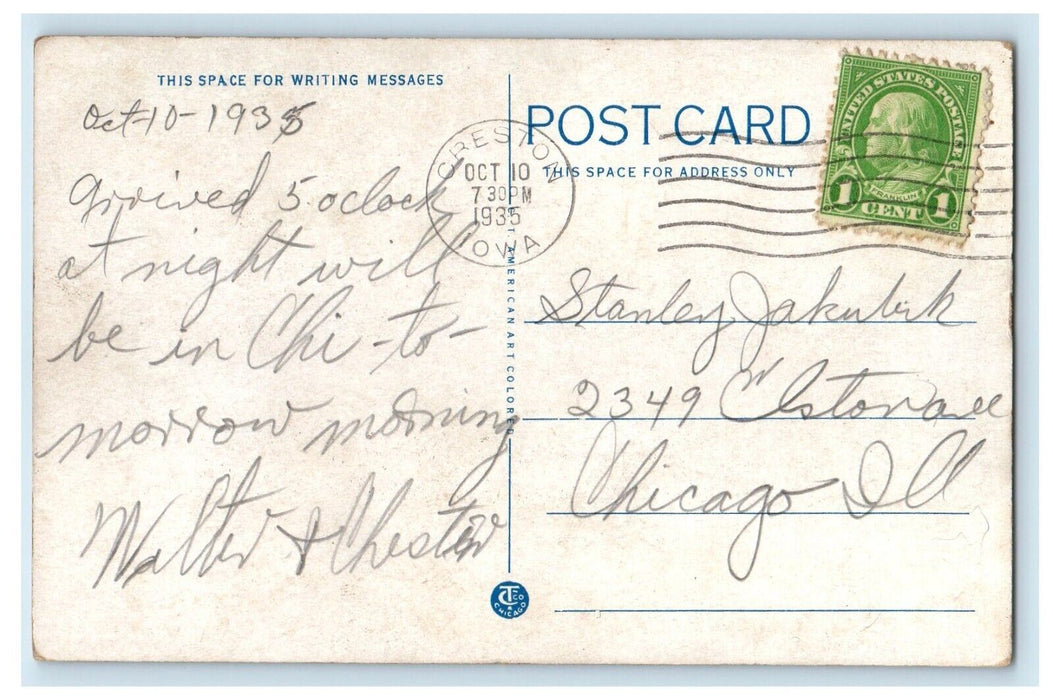 THIS SPACE FOR WRITING MESSAGES
Oct-10-1935
Arrived 5 oclock
at night will
be in Chi-to-
morrow morning
Walter & Chester
POST CARD
THIS SPACE FOR ADDRESS ONLY
CRESTON
OCT 10
7 30 PM
1935
IOWA
UNITED STATES POSTAGE
FRANKLIN
1 CENT 1
AMERICAN ART COLORED
Stanley Jakubik
2349 Elston ave
Chicago Ill
CT CO
CHICAGO